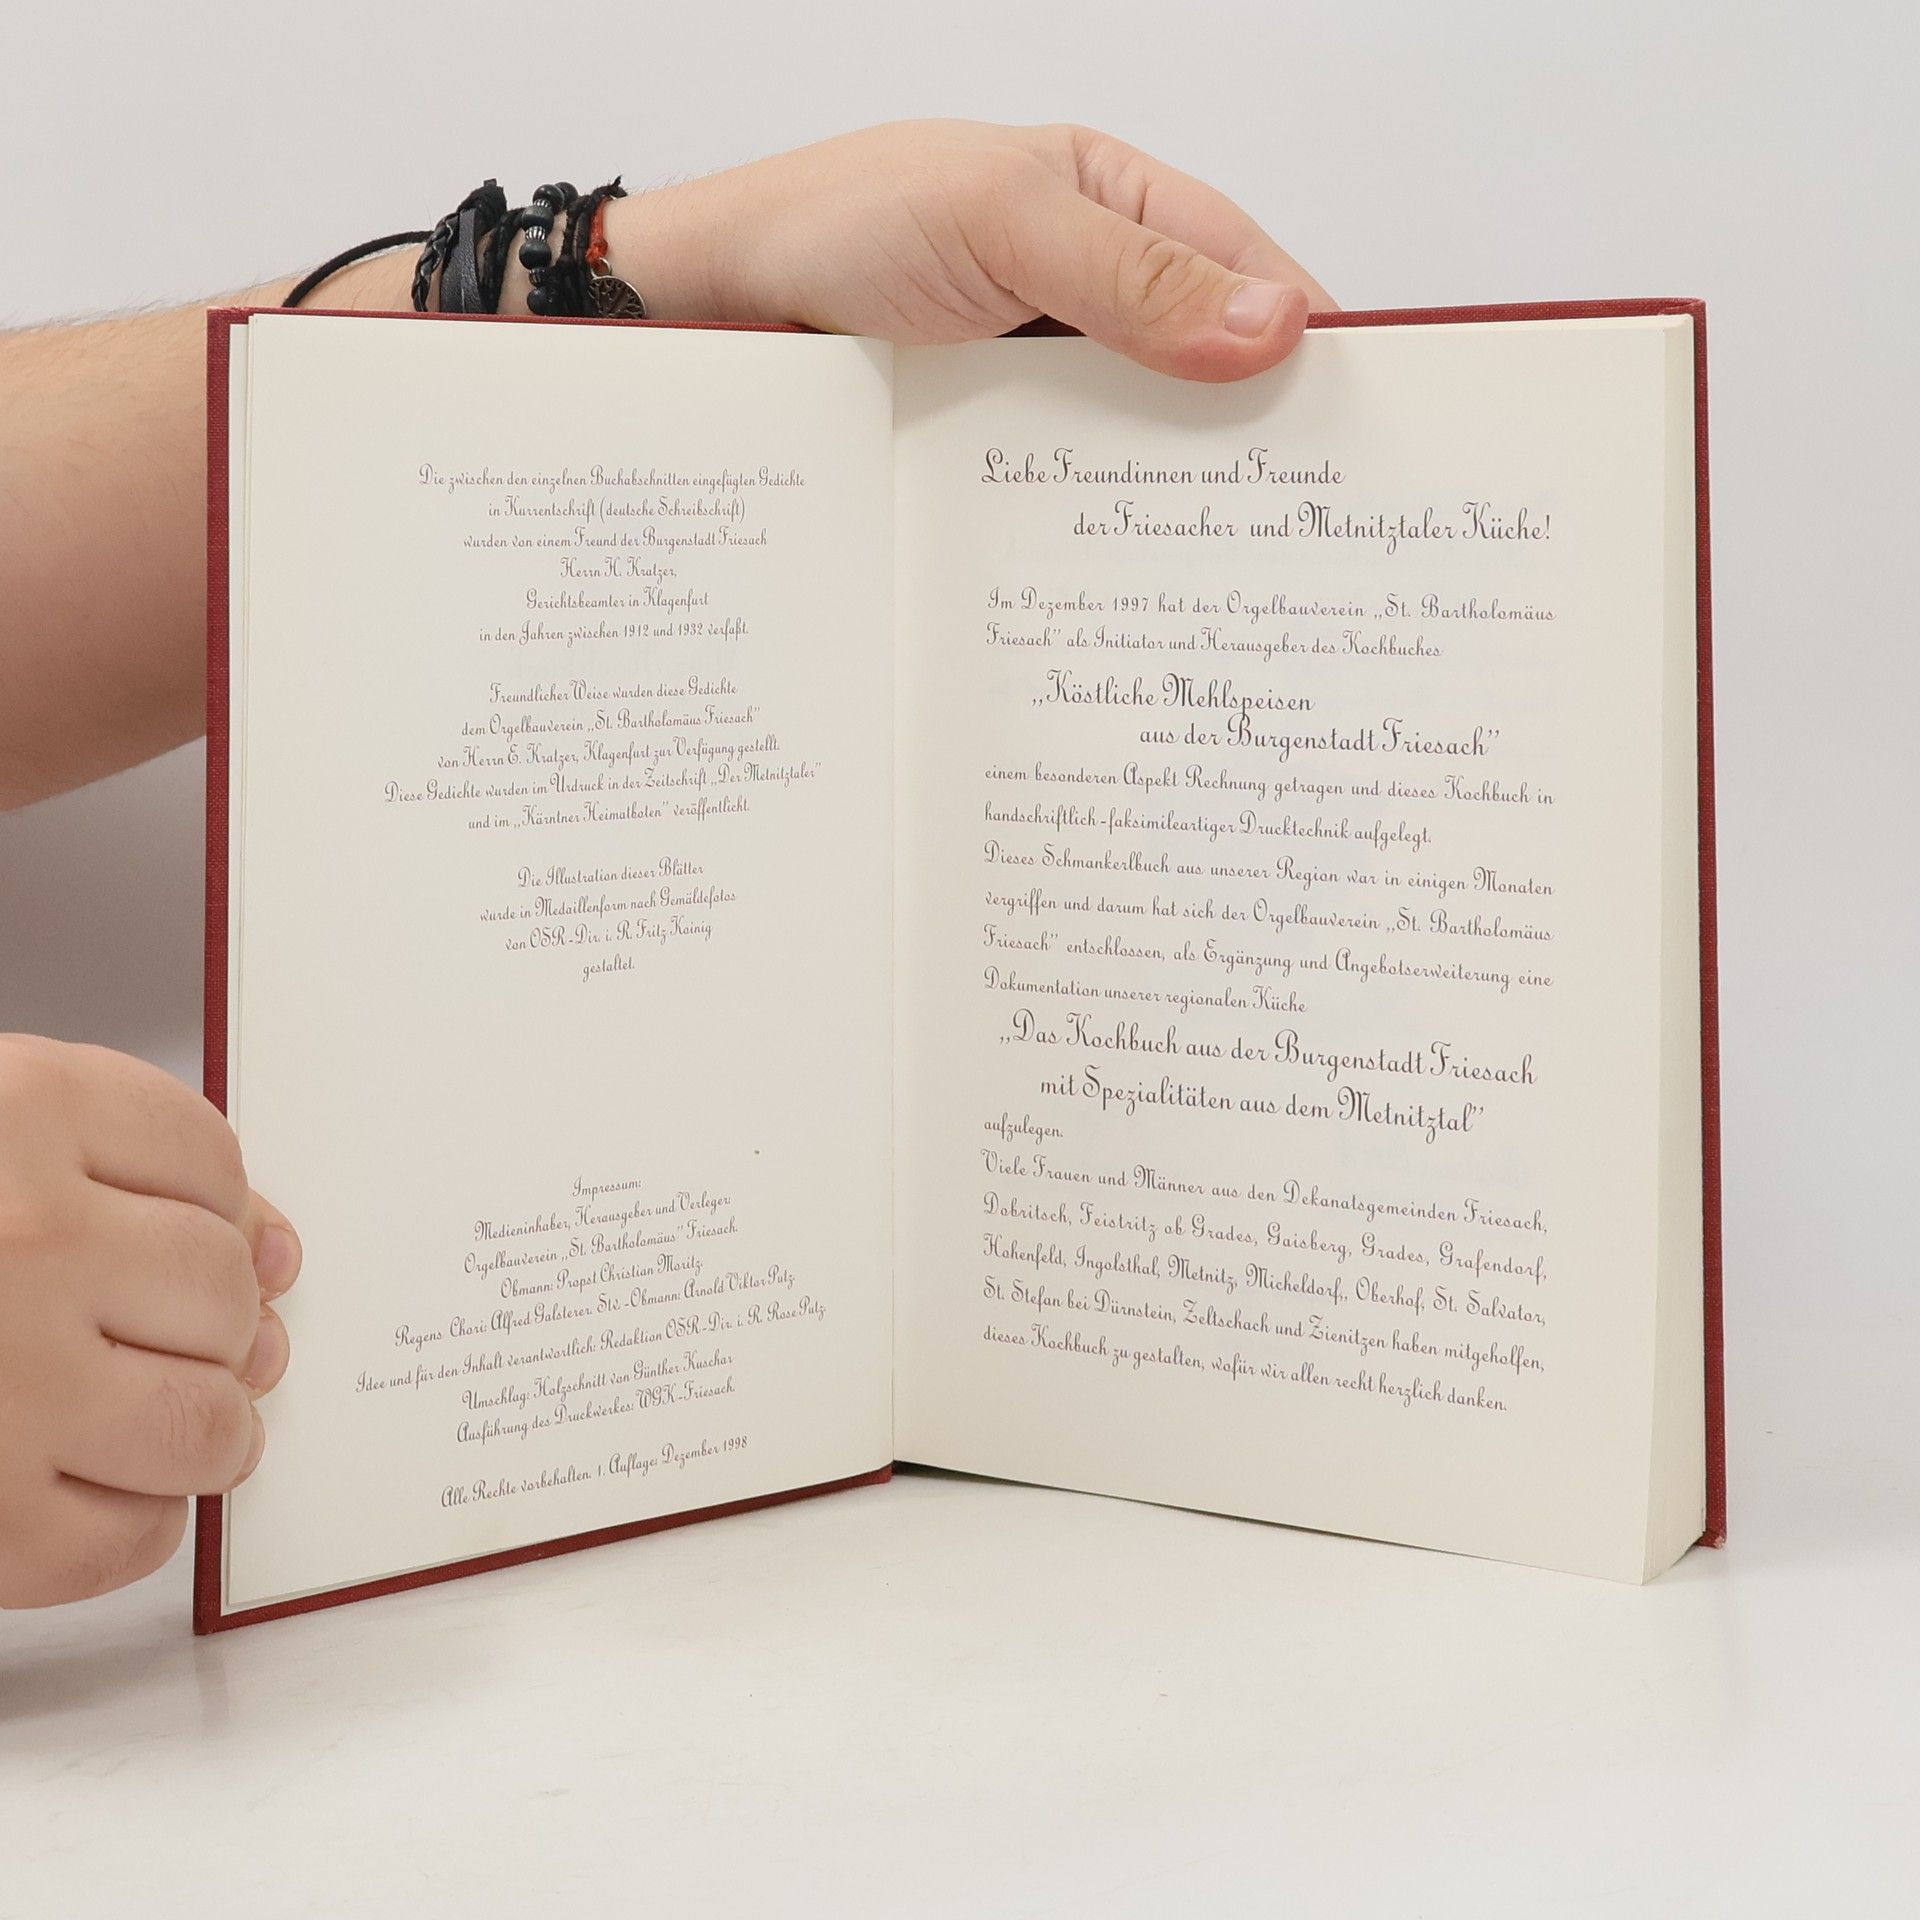 Die zwischen den einzelnen Buchabschnitten eingefügten Gedichte
in Kurrentschrift (deutsche Schreibschrift)
wurden von einem Freund der Burgenstadt Friesach
Herrn H. Kratzer,
Gerichtsbeamter in Klagenfurt
in den Jahren zwischen 1912 und 1932 verfaßt.
Freundlicher Weise wurden diese Gedichte
dem Orgelbauverein „St. Bartholomäus Friesach”
von Herrn E. Kratzer, Klagenfurt zur Verfügung gestellt.
Diese Gedichte wurden im Urdruck in der Zeitschrift „Der Metnitztaler”
und im „Kärntner Heimatboten” veröffentlicht.
Die Illustration dieser Blätter
wurde in Medaillenform nach Gemäldefotos
von OSR-Dir. i. R. Fritz Koinig
gestaltet.
Impressum:
Medieninhaber, Herausgeber und Verleger:
Orgelbauverein „St. Bartholomäus” Friesach.
Obmann: Propst Christian Moritz.
Regens Chori: Alfred Galsterer. Stv.-Obmann: Arnold Viktor Putz.
Idee und für den Inhalt verantwortlich: Redaktion OSR-Dir. i. R. Rose Putz.
Umschlag: Holzschnitt von Günther Kuschar
Ausführung des Druckwerkes: WGK-Friesach.
Alle Rechte vorbehalten. 1. Auflage: Dezember 1998
Liebe Freundinnen und Freunde
der Friesacher und Metnitztaler Küche!
Im Dezember 1997 hat der Orgelbauverein „St. Bartholomäus
Friesach” als Initiator und Herausgeber des Kochbuches
„Köstliche Mehlspeisen
aus der Burgenstadt Friesach”
einem besonderen Aspekt Rechnung getragen und dieses Kochbuch in
handschriftlich-faksimileartiger Drucktechnik aufgelegt.
Dieses Schmankerlbuch aus unserer Region war in einigen Monaten
vergriffen und darum hat sich der Orgelbauverein „St. Bartholomäus
Friesach” entschlossen, als Ergänzung und Angebotserweiterung eine
Dokumentation unserer regionalen Küche
„Das Kochbuch aus der Burgenstadt Friesach
mit Spezialitäten aus dem Metnitztal”
aufzulegen.
Viele Frauen und Männer aus den Dekanatsgemeinden Friesach,
Dobritsch, Feistritz ob Grades, Gaisberg, Grades, Grafendorf,
Hohenfeld, Ingolsthal, Metnitz, Micheldorf,, Oberhof, St. Salvator,
St. Stefan bei Dürnstein, Zeltschach und Zienitzen haben mitgeholfen,
dieses Kochbuch zu gestalten, wofür wir allen recht herzlich danken.